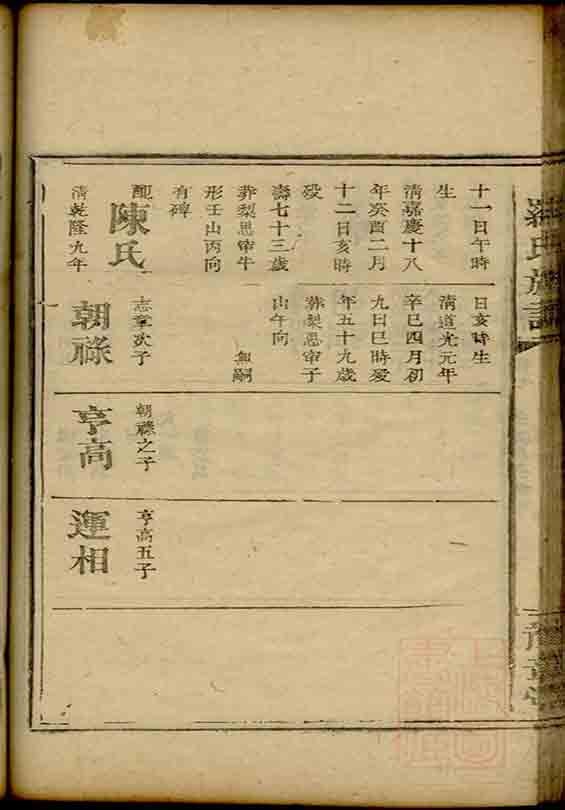 羅氏族譜
十一日午時
生
清嘉慶十八
年癸酉二月
十二日亥時
歿
壽七十三歲
葬梨思窜牛
形壬山丙向
有碑
配
陳氏
清乾隆九年
日亥時生
清道光元年
辛巳四月初
九日巳時爰
年五十九歲
葬梨思窜子
山午向
無嗣
志章次子
朝祿
朝祿之子
亨高
亨高五子
運相